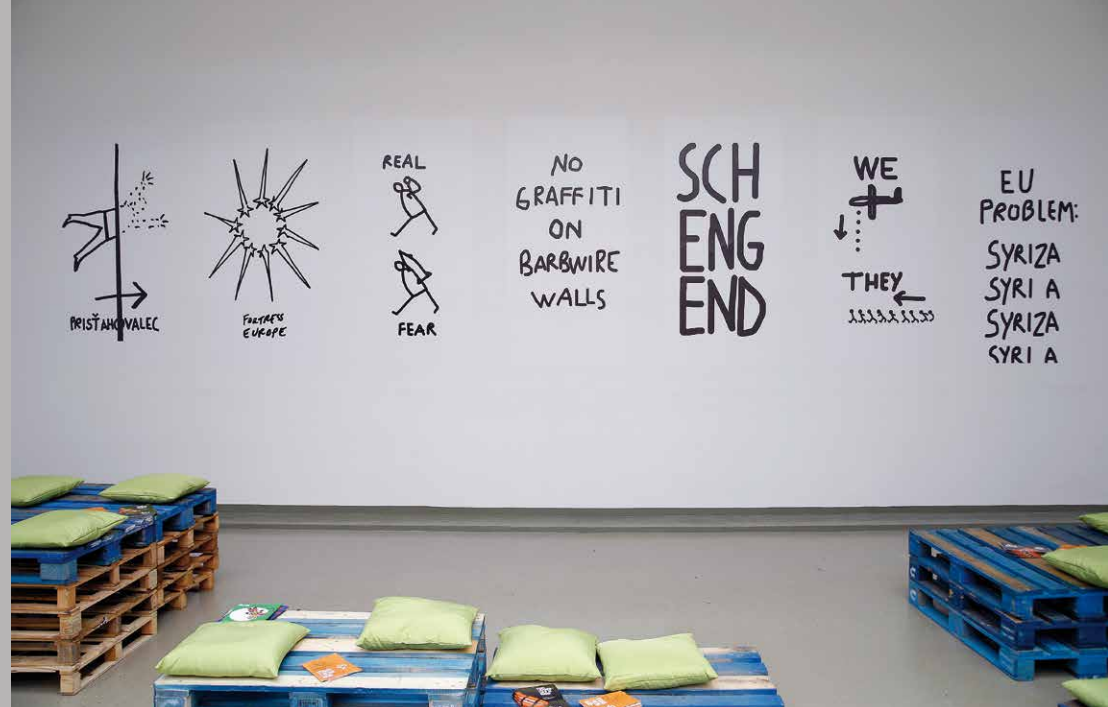 PRISŤAHOVALEC
FORTRESS
EUROPE
REAL
FEAR
NO
GRAFFITI
ON
BARBWIRE
WALLS
SCH
ENG
END
WE
THEY
EU
PROBLEM:
SYRIZA
SYRI A
SYRIZA
SYRI A